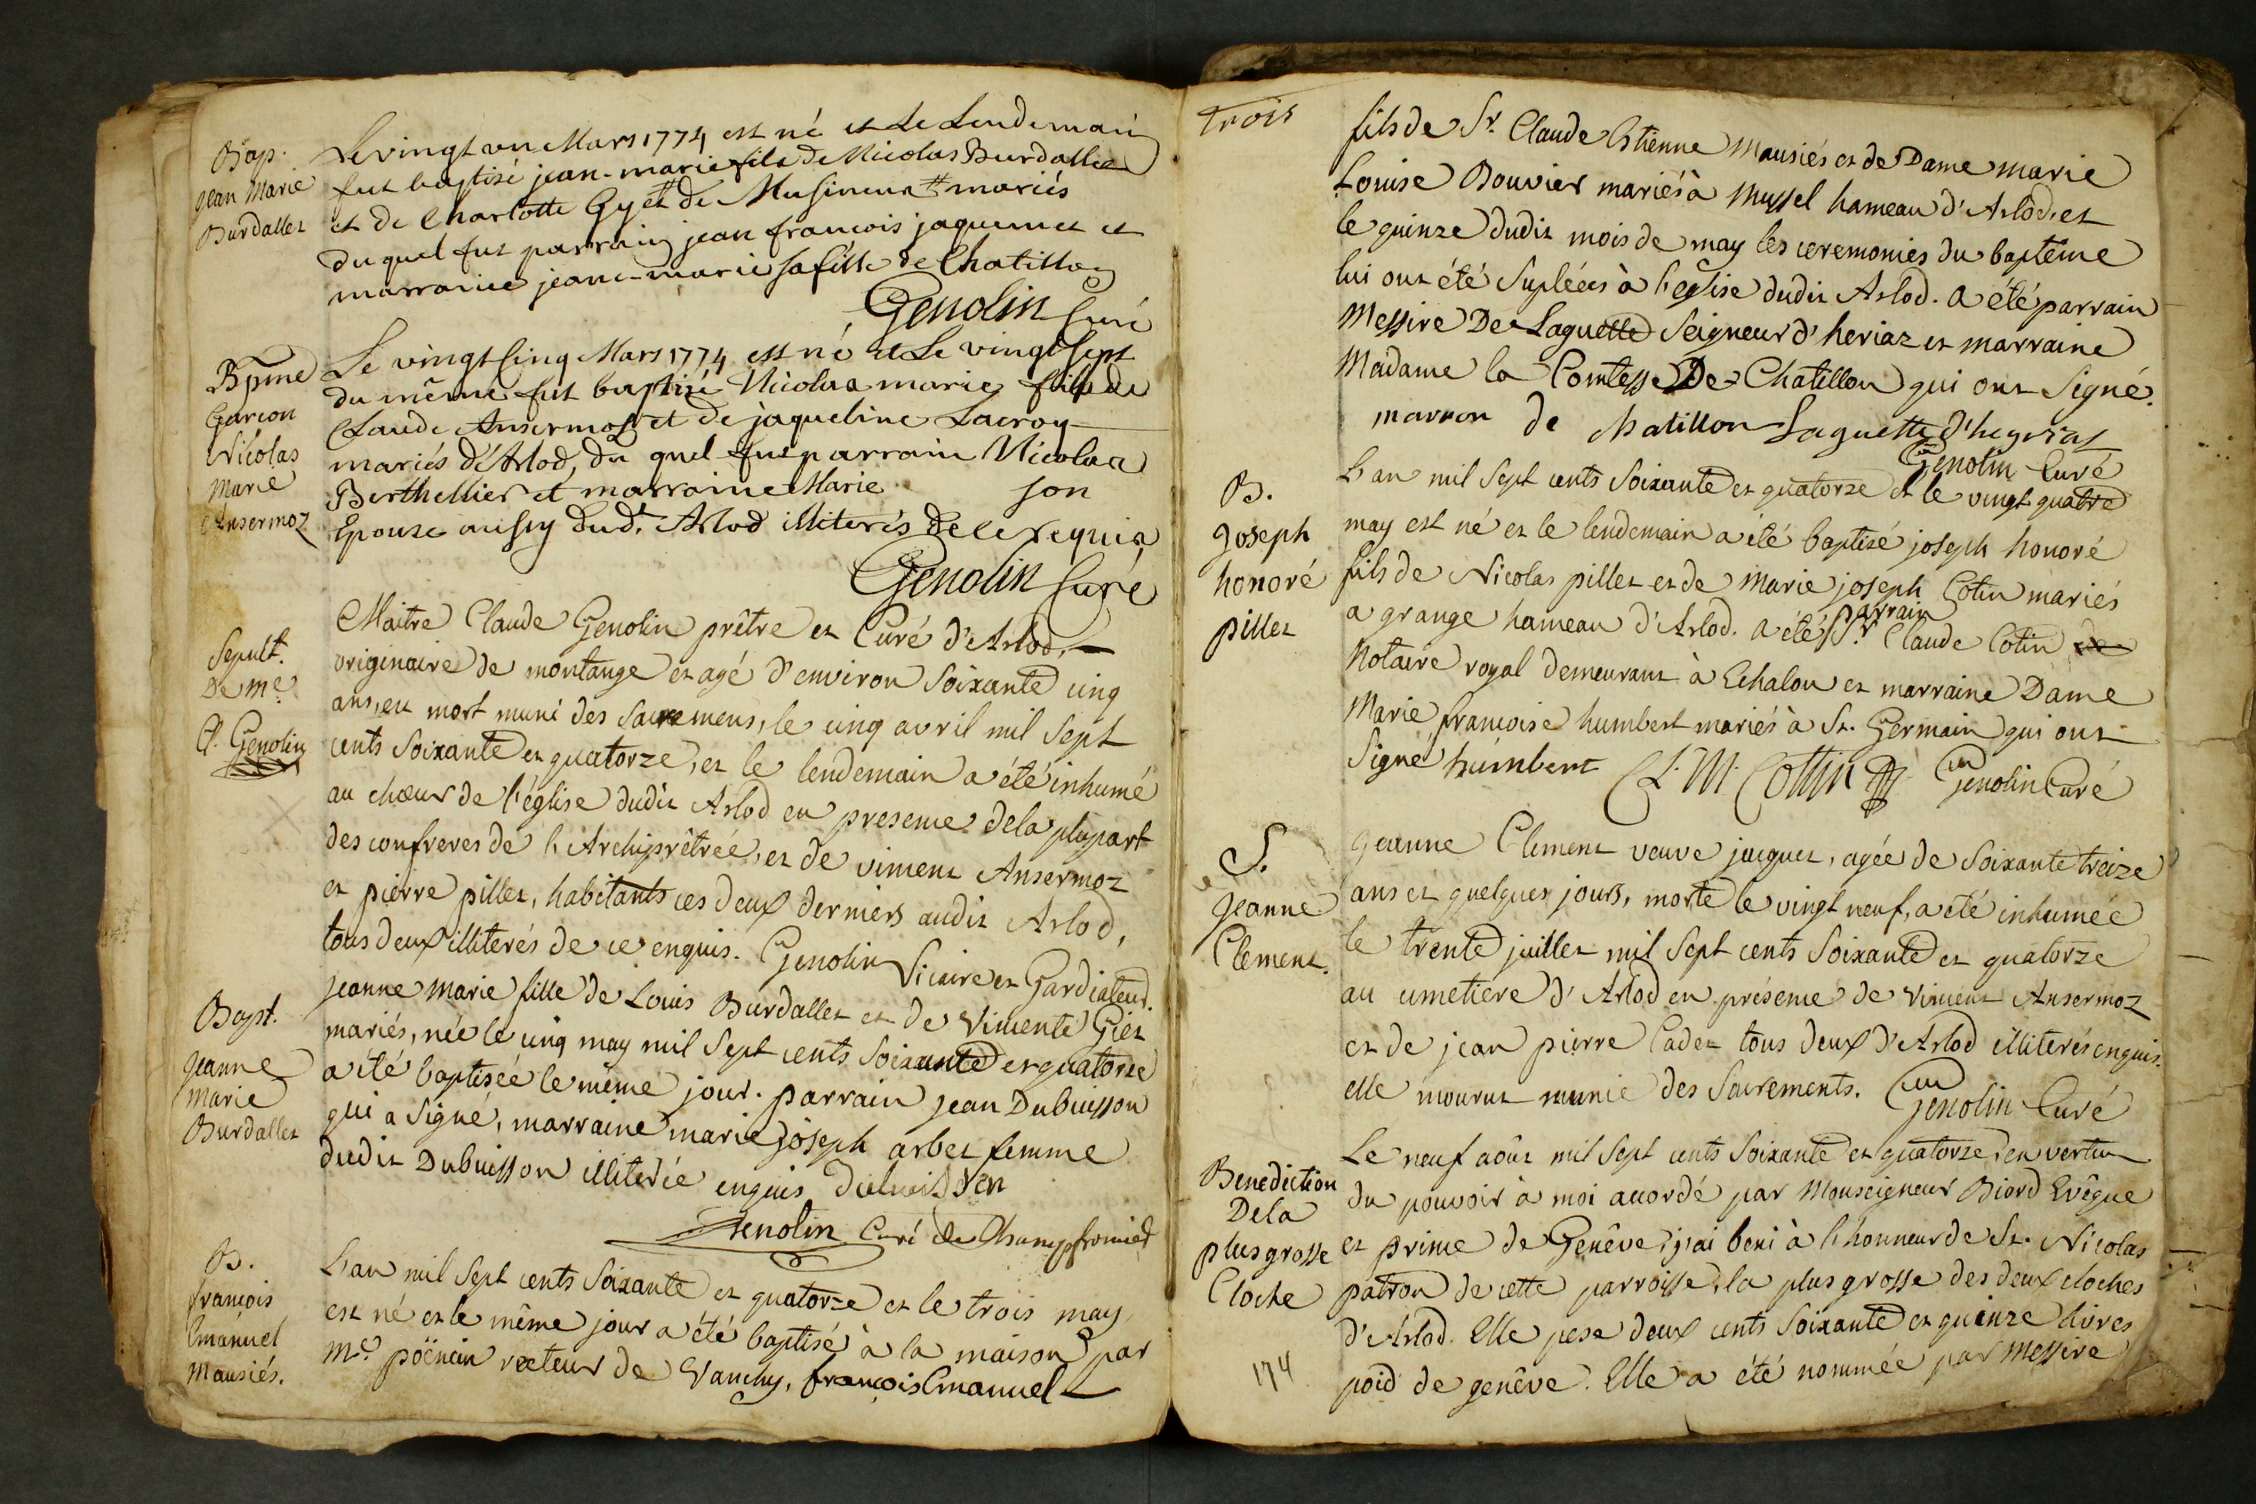 Bap.
Jean Marie
Burdallet
Le vingt un Mars 1774 est né et le lendemain
fut baptisé jean-marie fils de Nicolas Burdallet
et de Charlotte Gyèt de Musinens mariés
du quel fut parrain jean francois jaquemet et
marraine jeane-marie sa fille de Chatillon
Genolin Curé
Bpme
Garcon
Nicolas
Marie
Ansermoz
Le vingt cinq Mars 1774 est né et Le vingt sept
du même fut baptisé Nicolas marie fils de
Claude Ansermoz et de jaqueline Lacroy
mariés d'Arlod, du quel fut parrain Nicolas
Berthellier et marraine Marie son
Epouse aussy dudt. Arlod illiterés de ce requis
Genolin Curé
Sepult.
De me.
Cl. Genolin
Maitre Claude Genolin prêtre et Curé d'Arlod,
originaire de montange et agé d'environ soixante cinq
ans, est mort muni des sacremens, le cinq avril mil sept
cents soixante et quatorze, et le lendemain a été inhumé
au chœur de l'église dudit Arlod en presence de la plupart
des confreres de l'Archiprêtrée, et de vincent Ansermoz
et pierre pillet, habitants ces deux derniers audit Arlod,
tous deux illiterés de ce enquis. Genolin Vicaire et Gardiateur.
Bapt.
Jeanne
Marie
Burdallet
Jeanne Marie fille de Louis Burdallet et de Vincente Giet
mariés, née le cinq may mil sept cents soixante et quatorze
a été baptisée le même jour. parrain Jean Dubuisson
qui a signé, marraine marie joseph arbet femme
dudit Dubuisson illiterée enquis dubuisson
Genolin Curé de Champfromier
B.
françois
Emanuel
Mausiés.
L'an mil sept cents soixante et quatorze et le trois may
est né et le même jour a été baptisé à la maison par
me. poëncin recteur de Vanchy, françois Emanuel
trois
fils de Sr. Claude Etienne Mausiés et de Dame Marie
Louise Bouvier mariés à Mussel hameau d'Arlod, et
le quinze dudit mois de may les ceremonies du baptême
lui ont été supléées à l'église dudit Arlod. A été parrain
Messire De Laguette Seigneur d'heriaz et marraine
Madame la Comtesse De Chatillon qui ont signé.
marron de chatillon Laguette d'heyriat
Genolin Curé
B.
Joseph
honoré
pillet
L'an mil sept cents soixante et quatorze et le vingt quatre
may est né et le lendemain a été baptisé joseph honoré
fils de Nicolas pillet et de Marie joseph Cotin mariés
a grange hameau d'Arlod. A été parrain Sr. Claude Cotin
Notaire royal demeurant à Echalon et marraine Dame
Marie françoise humbert mariés à St. Germain qui ont
signé humbert C. M. Cottin Genolin Curé
S.
Jeanne
Clement.
Jeanne Clement veuve jacquet, agée de soixante treize
ans et quelques jours, morte le vingt neuf, a été inhumée
le trente juillet mil sept cents soixante et quatorze
au cimetiere d'Arlod en présence de Vincent Ansermoz
et de jean pierre Cadet tous deux d'Arlod illiterés enquis.
elle mourut munie des sacrements. Genolin Curé
Benediction
De la
plus grosse
Cloche
Le neuf août mil sept cents soixante et quatorze, en vertu
du pouvoir à moi accordé par Monseigneur Biord Evêque
et prince de Genêve, j'ai beni à l'honneur de St. Nicolas
patron de cette parroisse, la plus grosse des deux cloches
d'Arlod. Elle pese deux cents soixante et quinze livres
poid de genêve. Elle a été nommée par Messire
174